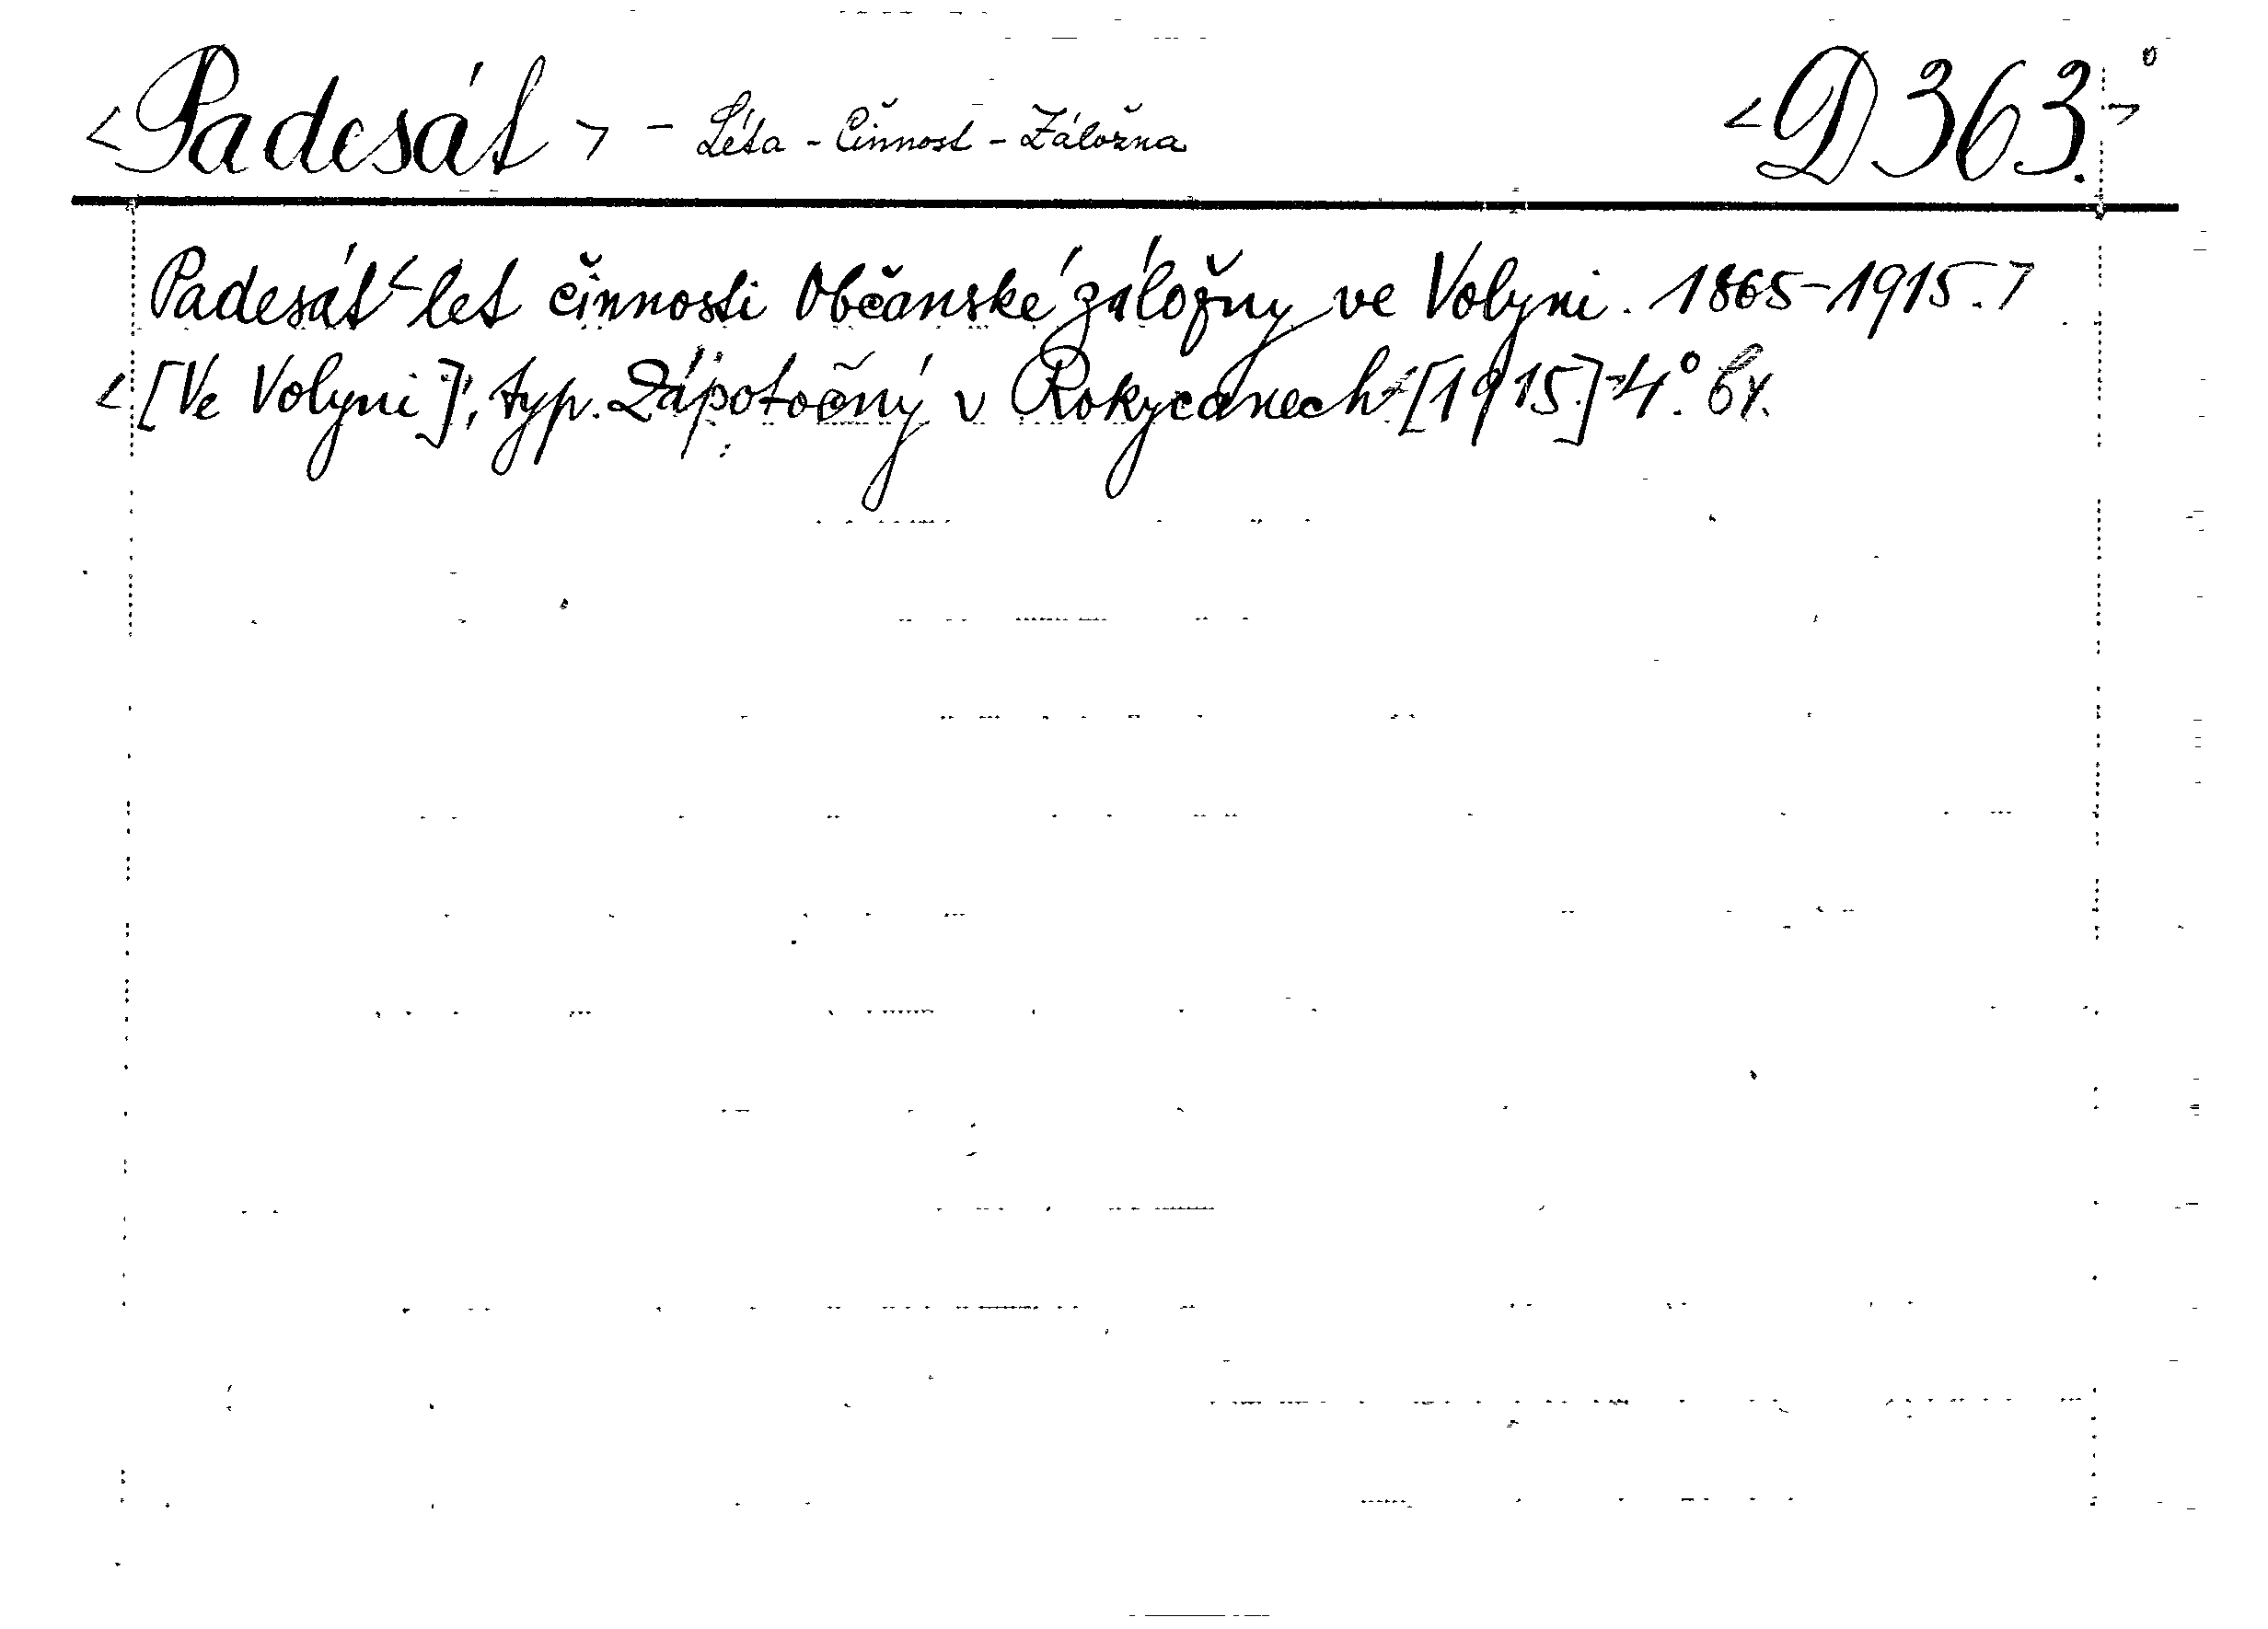 <Padesát> - Léta - Činnost - Záložna <D 363.>
Padesát <let činnosti Občanské záložny ve Volyni. 1865-1915.>
<[Ve Volyni], typ. Zápotočný v Rokycanech [1915.] 4°.